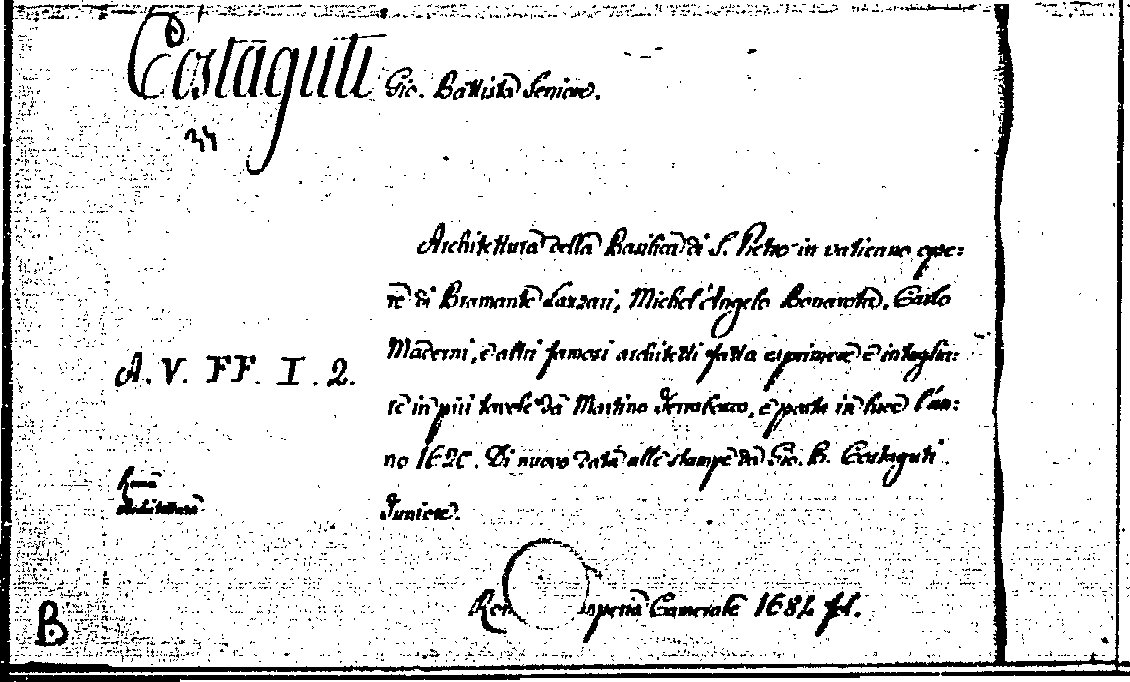 Costaguti Gio. Battista Seniore.
34
Architettura della Basilica di S. Pietro in vaticano ope=
re di Bramante Lazzari, Michel'Angelo Bonarota, Carlo
Maderni, e altri famosi architetti fatta esprimere e intaglia=
A. V. FF. I. 2.
re in più tavole da Martino Ferrabosco, e posta in luce l'an=
no 1620. Di nuovo data alle stampe da Gio. B. Costaguti
Roma
Architettura
Juniore.
Camerale 1684 fol.
B